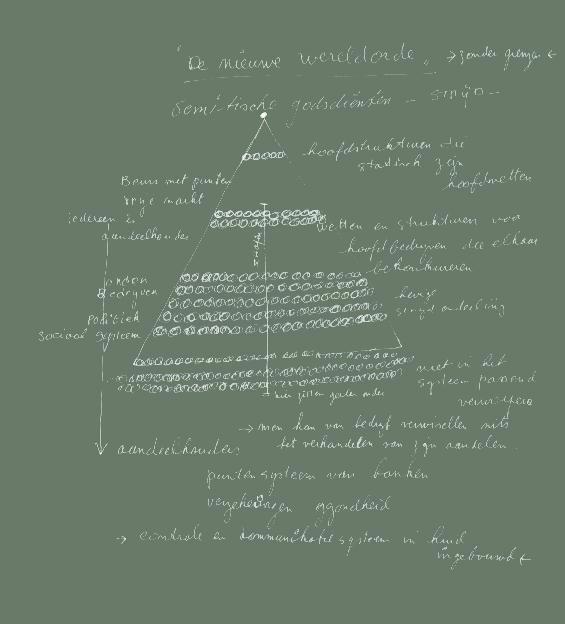 "De nieuwe wereldorde" → zonder grenzen ←
Semitische godsdiensten - strijd -
hoofdstrukturen die
statisch zijn
hoofdwetten
Beurs met punten
vrije markt
iedereen is
aandeelhouder
wetten en strukturen voor
hoofdbedrijven die elkaar
bekonkureren
straffen
Bedrijven
Politiek
Sociaal systeem
hevige
strijd onderling
niet in het
systeem passend
verwerpen
→ men kan van bedrijf verwisselen mits
het verhandelen van zijn aandelen.
aandeelhouders
punten systeem van banken
verzekeringen gezondheid
→ controle en communicatie systeem in huid
ingebouwd ←